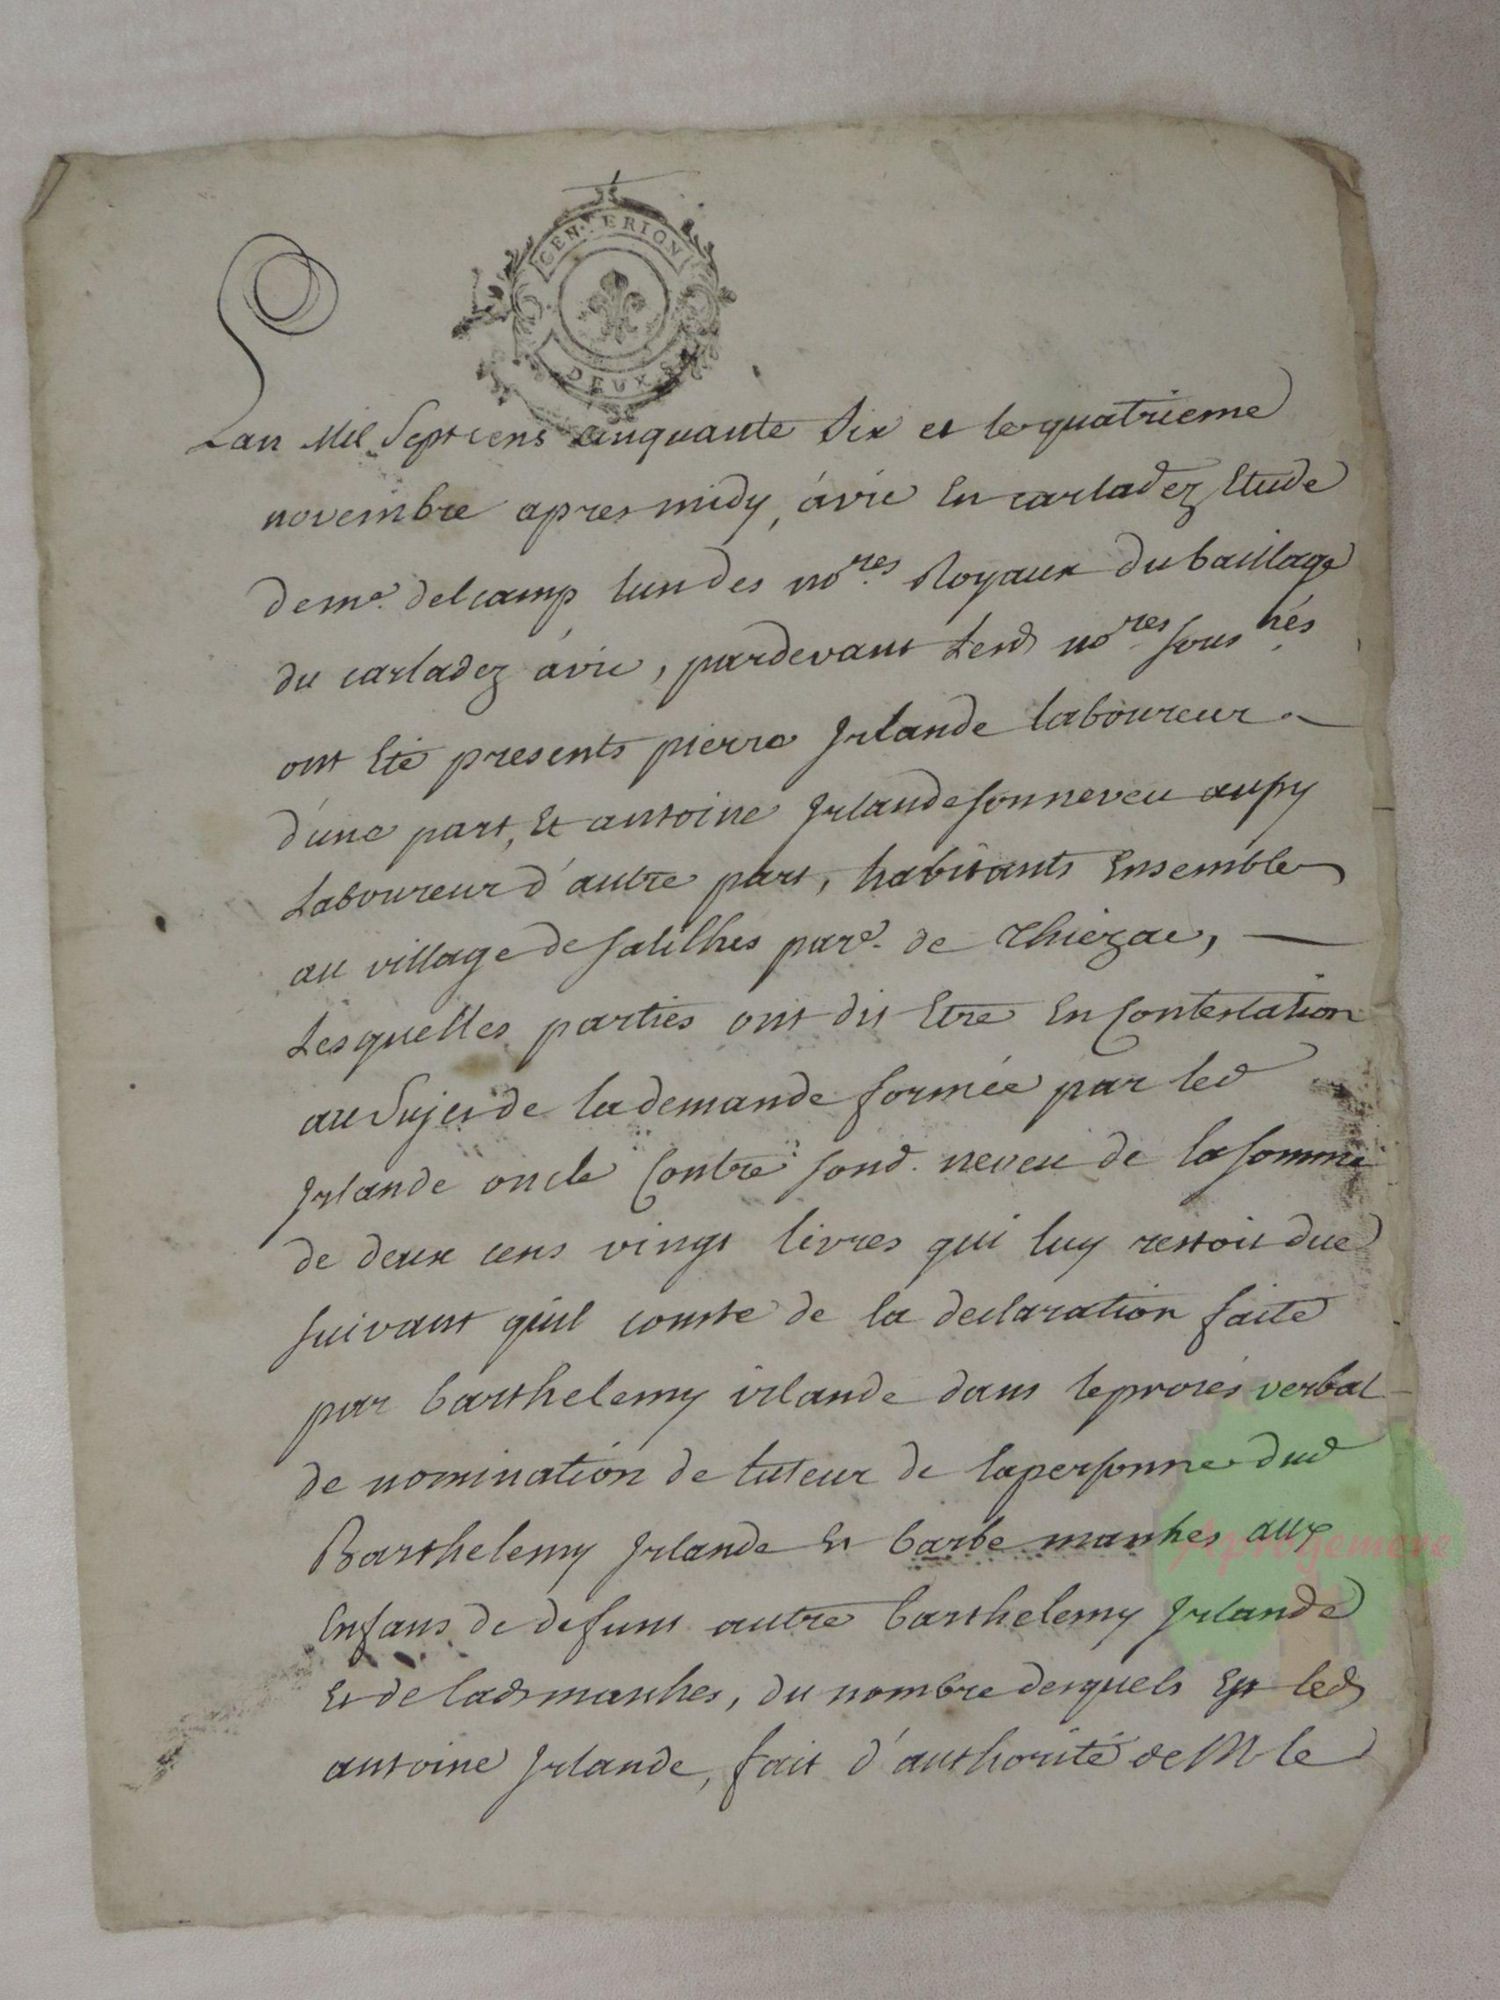 GEN.TERION
DEUX.S
Lan Mil Septcens cinquante Six et le quatrieme
novembre apres midy, á vic En carladez Etude
de me. delcamp lun des nores. Royaux du bailliage
du carladez á vic, pardevant Lesd nores. soushés.
ont Eté presents pierre Jrlande laboureur
d'une part, Et antoine Jrlande son neveu aussy
Laboureur d'autre part, habitants Ensemble
au village de salilhes pare. de Thiezac,
Lesquelles parties ont dit Etre En Contestation
au Sujet de la demande formée par led
Jrlande oncle Contre sond. neveu de la somme
de deux cens vingt livres qui luy restoit due
suivant quil conste de la declaration faite
par barthelemy irlande dans le procés verbal
de nomination de tuteur de la personne dud
Barthelemy Jrlande Et barbe manhes aux
Enfans de defunt autre barthelemy Jrlande
Et de lad manhes, du nombre desquels Est led
antoine Jrlande, fait d'authorité de M le
Aprogemere